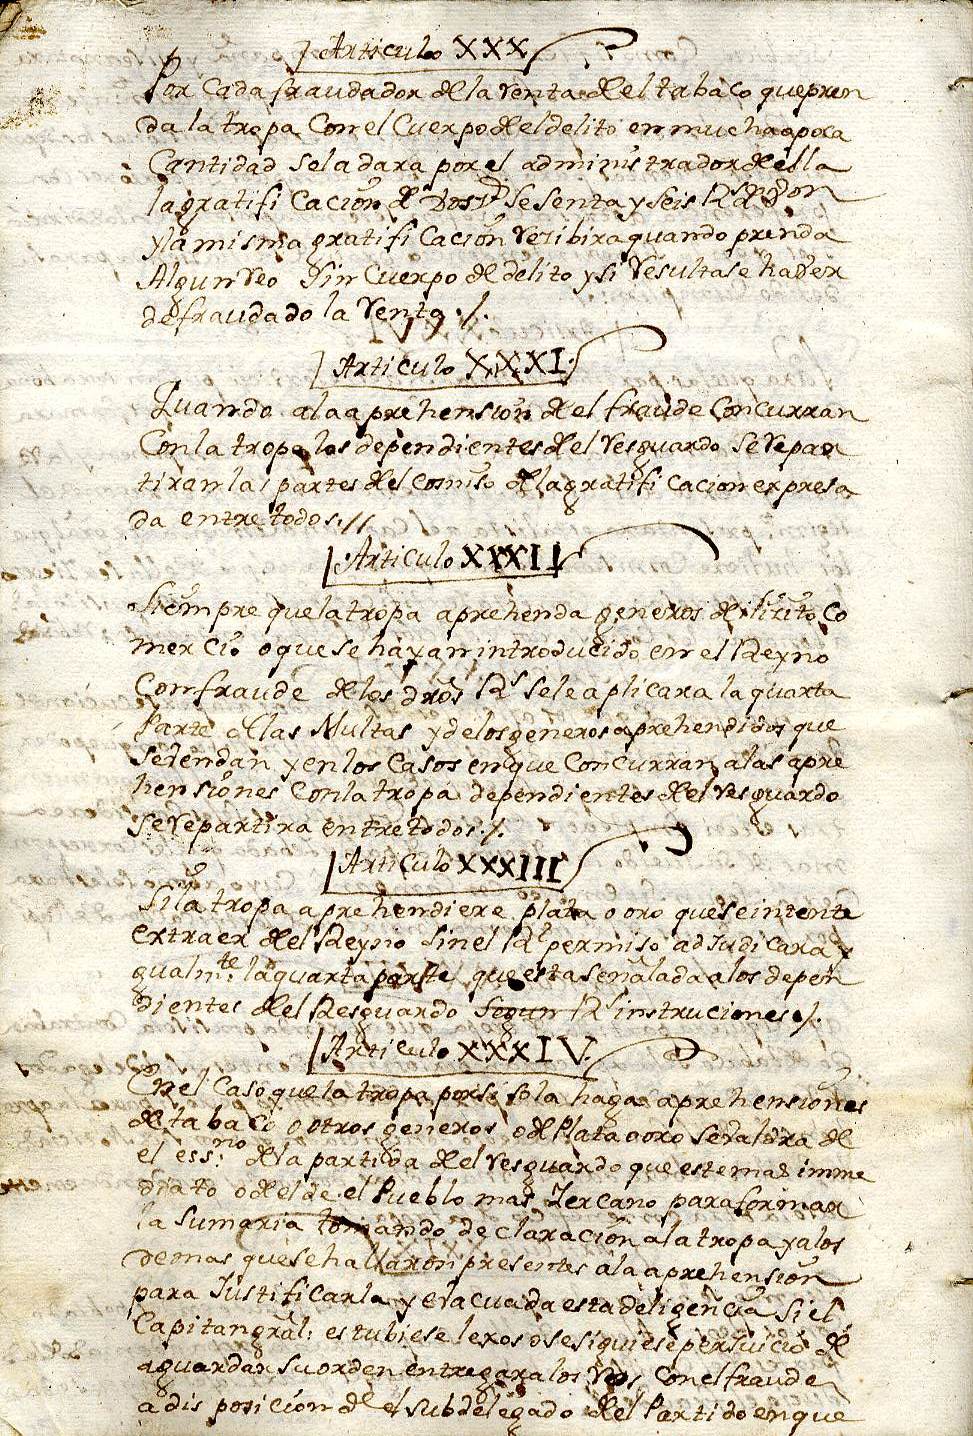 Articulo XXX
Por Cada fraudador de la Venta del tabaco que pren
da la tropa Con el Cuerpo del delito en mucha o poca
Cantidad se la dara por el administrador de ella
la gratificacion de Dos.tos Sesenta y seis Rs de Von
y la misma gratificacion Recibira quando prenda
Algun Reo Sin Cuerpo de delito y si Resultase haver
defraudado la Renta./.
Articulo XXXI.
Quando a la aprehension del fraude Concurran
Con la tropa los dependientes del Resguardo se Repar
tiran las partes del Comiso de la gratificacion expresa
da entre todos.//
Articulo XXXII
Siempre que la tropa aprehenda generos de ilicito Co
mercio o que se hayan introducido en el Reyno
Con fraude de los dros Rs se le aplicara la quarta
Parte de las Multas y de los generos aprehendidos que
se vendan y en los Casos en que Concurran a las apre
hensiones Con la tropa dependientes del Resguardo
se Repartira entre todos./.
Articulo XXXIII
Si la tropa aprehendiere plata o oro que se intente
extraer del Reyno Sin el Rl permiso adJudicara y
gualmte: la quarta parte que esta señalada a los depen
dientes del Resguardo Segun Rs instruciones./.
Articulo XXXIV.
En el Caso que la tropa por si sola haga aprehensiones
de tabaco o otros generos o de Plata o oro se Valdra de
el essno: de la partida del Resguardo que este mas imme
diato o del de el Pueblo mas Zercano para formar
la sumaria tomando declaracion a la tropa y a los
demas que se hallaron presentes a la aprehension
para Justificarla y evacuada esta deligencia si el
Capitan gral: estubiese lexos o se siguiese perJuicio de
aguardar su orden entregara los Reos Con el fraude
a disposicion de el subdelegado del Partido en que